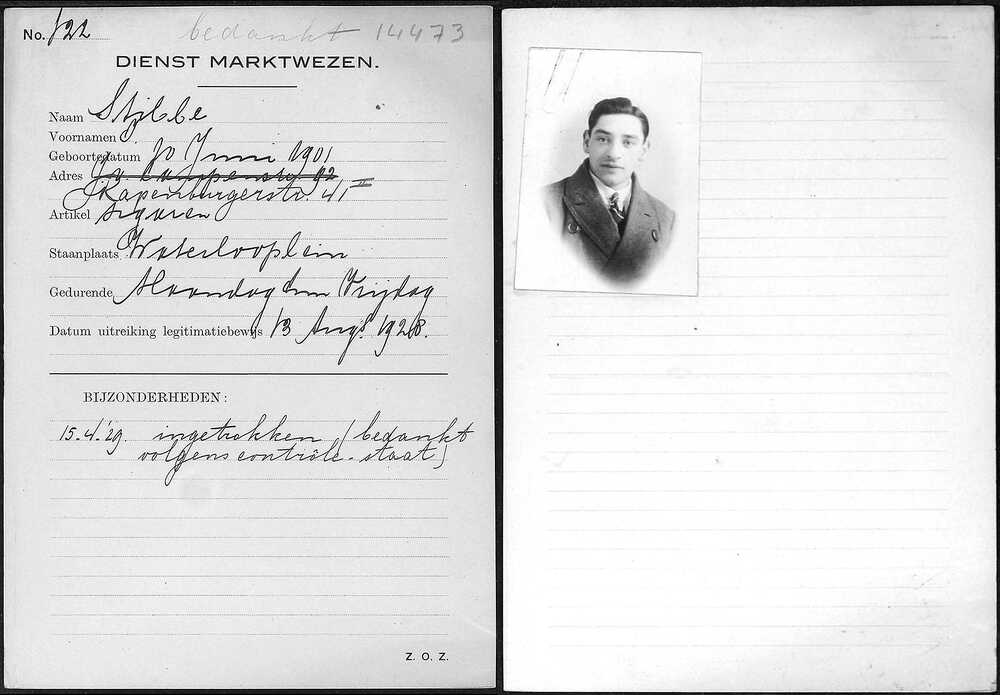 No. 122 bedankt 14473
DIENST MARKTWEZEN.
Naam Stibbe
Voornamen J
Geboortedatum 30 Juni 1901
Adres 92
Rapenburgerstr. 41 II
Artikel sigaren
Staanplaats Waterlooplein
Gedurende Maandag t/m Vrijdag
Datum uitreiking legitimatiebewijs 13 Aug. 1928.
BIJZONDERHEDEN:
15-4-'29. ingetrokken (bedankt
volgens contrôle-staat)
Z. O. Z.